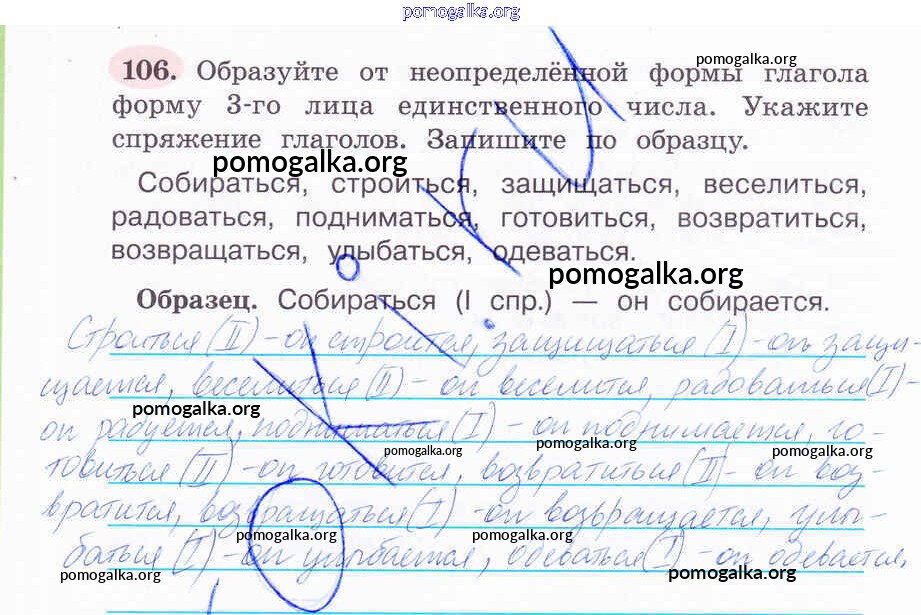 pomogalka.org
pomogalka.org
106. Образуйте от неопределённой формы глагола
форму 3-го лица единственного числа. Укажите
спряжение глаголов. Запишите по образцу.
pomogalka.org
Собираться, строиться, защищаться, веселиться,
радоваться, подниматься, готовиться, возвратиться,
возвращаться, улыбаться, одеваться.
pomogalka.org
Образец. Собираться (I спр.) — он собирается.
Строиться (II) - он строится, защищаться (I) - он защи-
щается, веселиться (II) - он веселится, радоваться (I) -
pomogalka.org
он радуется, подниматься (I) - он поднимается, го-
pomogalka.org pomogalka.org pomogalka.org
товиться (II) - он готовится, возвратиться (II) - он воз-
вратится, возвращаться (I) - он возвращается, улы-
pomogalka.org pomogalka.org pomogalka.org
баться (I) - он улыбается, одеваться (I) - он одевается.
pomogalka.org pomogalka.org